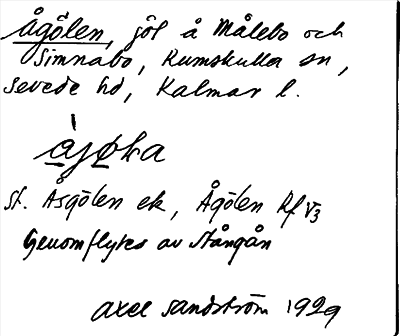 Ågölen, jöl å Målebo och
Simnabo, Rumskulla sn,
Sevede hd, Kalmar l.
åjøka
st. Åsgölen ek, Ågölen Rf V3
Genomflytes av Stångån
Axel Sandström 1929